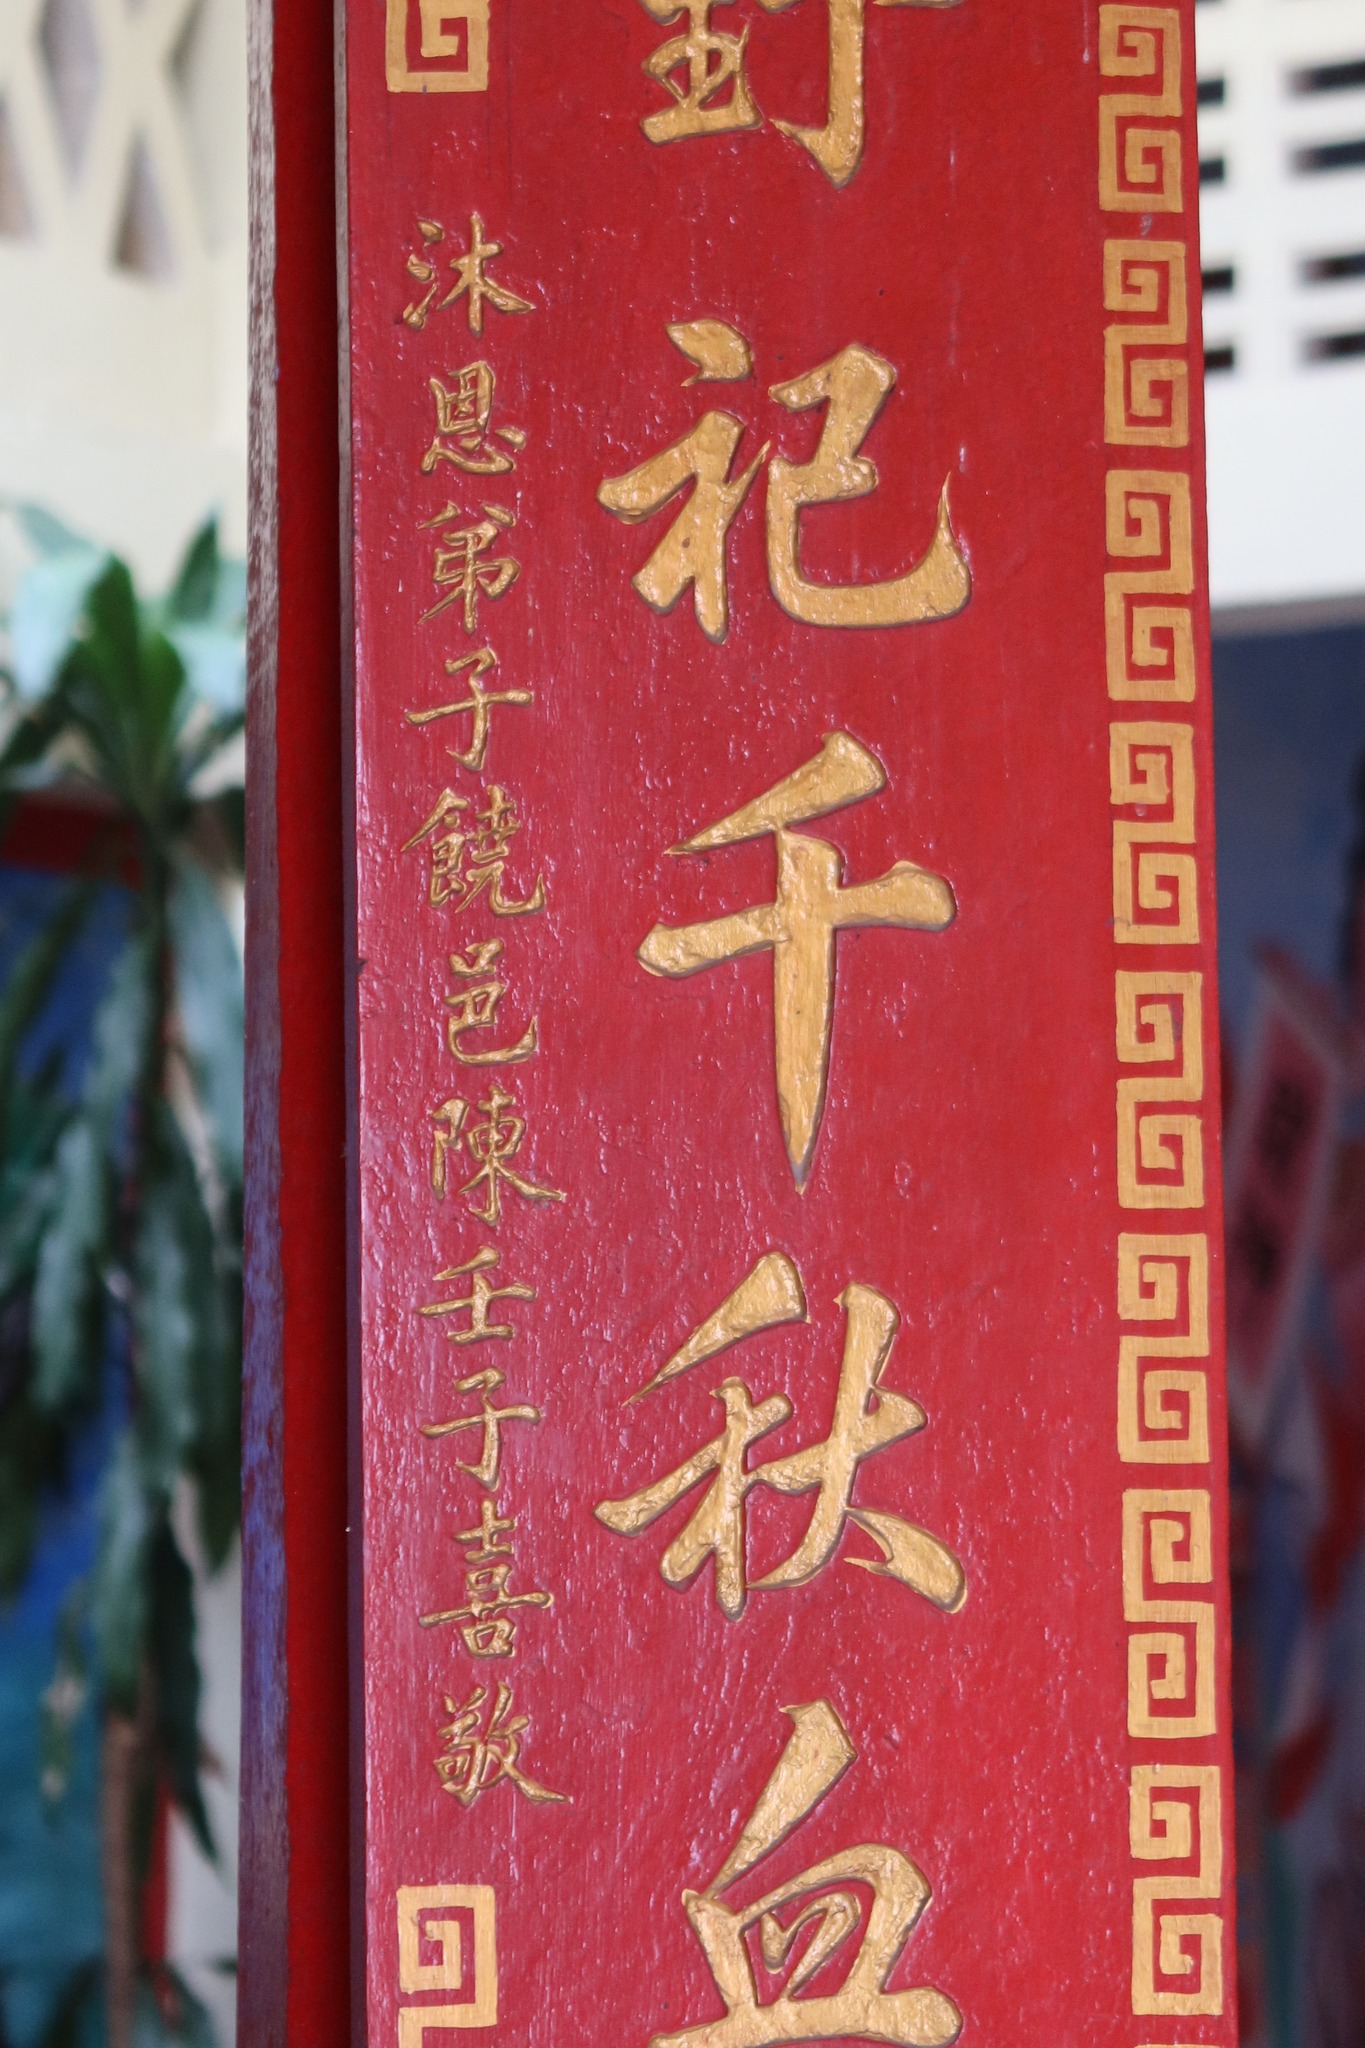 祀千秋血
沐恩弟子饒邑陳壬子喜敬